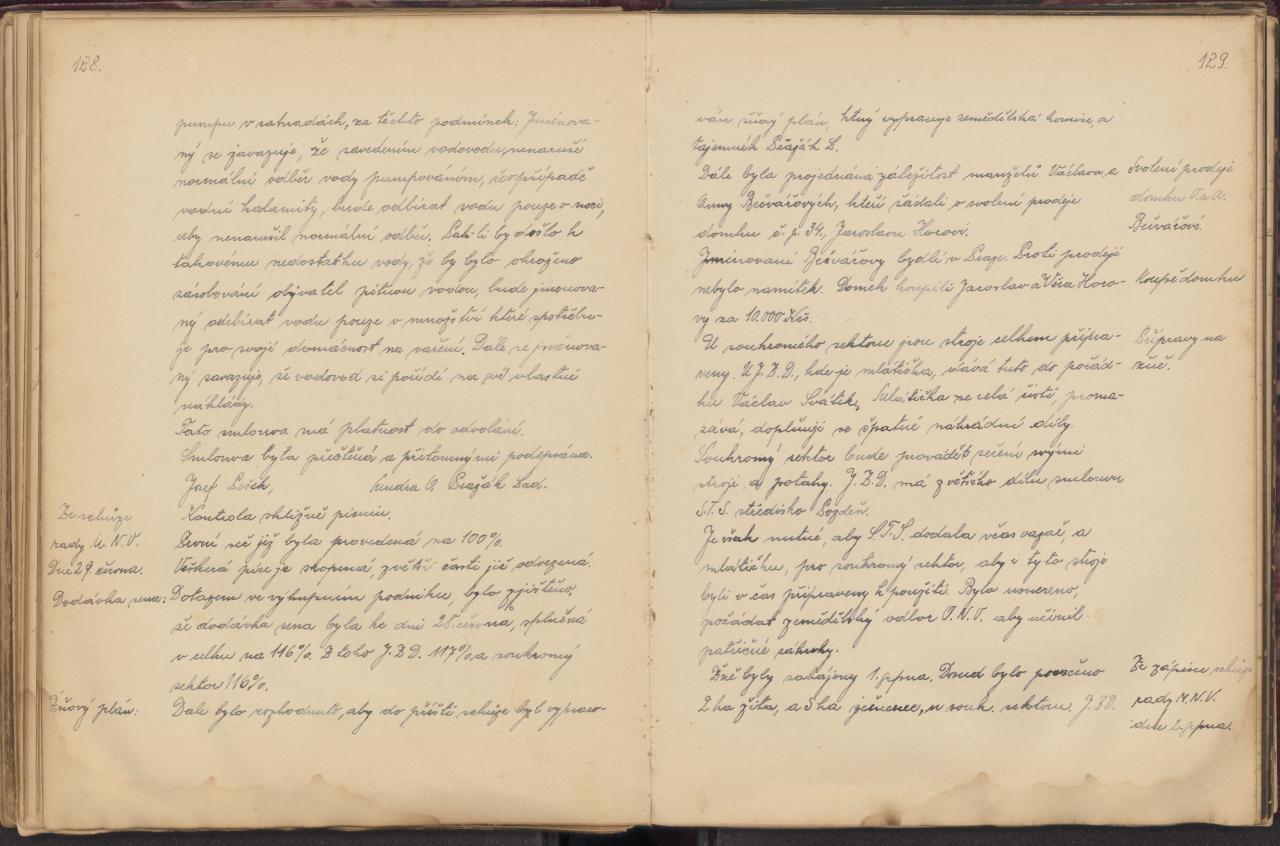 128.
pumpu v zahradách, za těchto podmínek: Jmenova-
ný se zavazuje, že zavedením vodovodu, nenaruší
normální odběr vody pumpováním, že v případě
vodní kalamity, bude odbírat vodu pouze v noci,
aby nenarušil normální odběr. Pak-li by došlo k
takovému nedostatku vody, že by bylo ohroženo
zásobování obyvatel pitnou vodou, bude jmenova-
ný odbírat vodu pouze v množství které spotřebu-
je pro svojí domácnost na vaření. Dále se jmenova-
ný zavazuje, že vodovod si pořídí na své vlastní
náklady.
Tato smlouva má platnost do odvolání.
Smlouva byla přečtená a přítomnými podepsána.
Josef Pešek, Kundra A. Pražák Lad.
Ze schůze
rady M.N.V.
Dne 29. června.
Kontrola sklizně pícnin.
První seč již byla provedená na 100%.
Veškerá píce je skopená, z větší části již odvezená.
Dodávka sena:
Dotazem ve výkupním podniku, bylo zjištěno,
že dodávka sena byla ke dni 28. června, splněná
v celku na 116%. Z toho J.Z.D. 117% a soukromý
sektor 116%.
Žňový plán:
Dále bylo rozhodnuto, aby do příští schůze byl vypraco-
129.
ván žňový plán, který vypracuje zemědělská komise, a
tajemník Pražák L.
Dále byla projednána záležitost manželů Václava a
Anny Bečvářových, kteří žádali o svolení prodeje
domku č. p. 34, Jaroslavu Horovi.
Svolení prodeje
domku V. a A.
Bečvářové.
Jmenovaní Bečvářovy bydlí v Praze. Proti prodeji
nebylo námitek. Domek koupili Jaroslav a Věra Horo-
vy za 10.000 Kčs.
Koupě domku
U soukromého sektoru jsou stroje celkem připra-
veny. U J.Z.D., kde je mlátička, dává tuto do pořád-
ku Václav Svátek, Mlátička se celá čistí, proma-
zává, doplňují se špatné náhradní díly.
Přípravy na
žně.
Soukromý sektor bude provádět sečení svými
stroji, a potahy. J.Z.D. má z většího dílu smlouvu
S.T.S. středisko Pozdeň.
Je však nutné, aby S.T.S. dodala včas vazač, a
mlátičku, pro soukromý sektor, aby i tyto stroje
byli v čas připraveny k použití. Bylo usneseno,
požádat zemědělský odbor O.N.V. aby učinil
patřičné zákroky.
Žně byly zahájeny 1. srpna. Dosud bylo posečeno
2 ha žita, a 5 ha ječmene, u souk. sektoru. J.ZD.
Ze zápisu schůze
rady M.N.V.
dne 2. srpna.